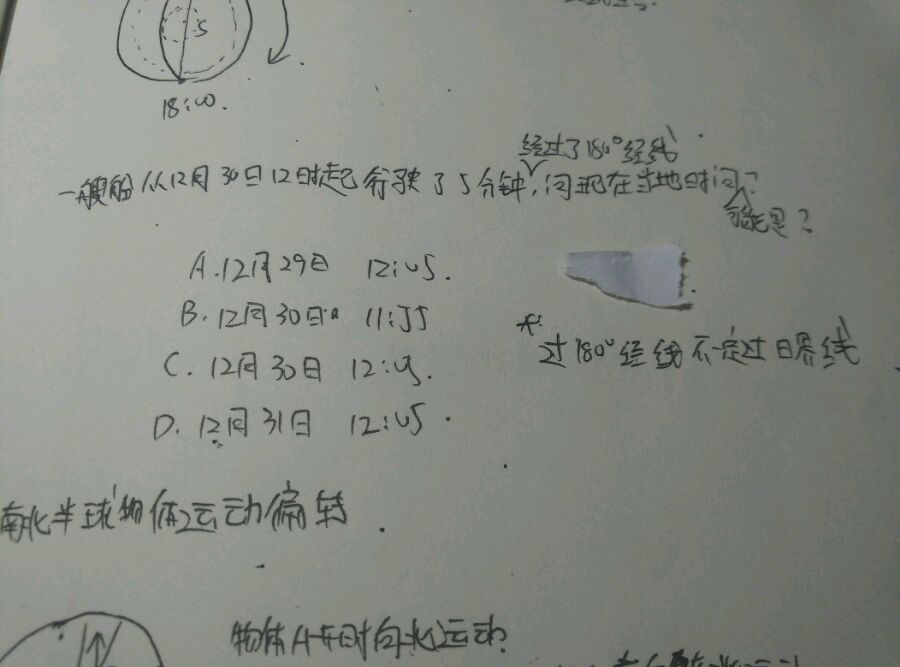 S
18:00.
经过了180°经线
一艘船从12月30日12时起行驶了5分钟,问现在当地时间?
可能是?
A.12月29日 12:05.
B.12月30日 11:55
C.12月30日 12:05.
D.12月31日 12:05.
过180°经线不一定过日界线
南北半球物体运动偏转.
物体A开时向北运动